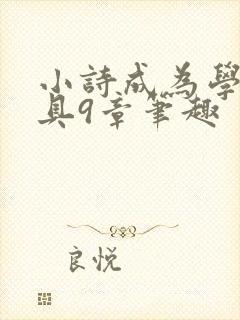 小詩成為學
具9章筆趣
良悅